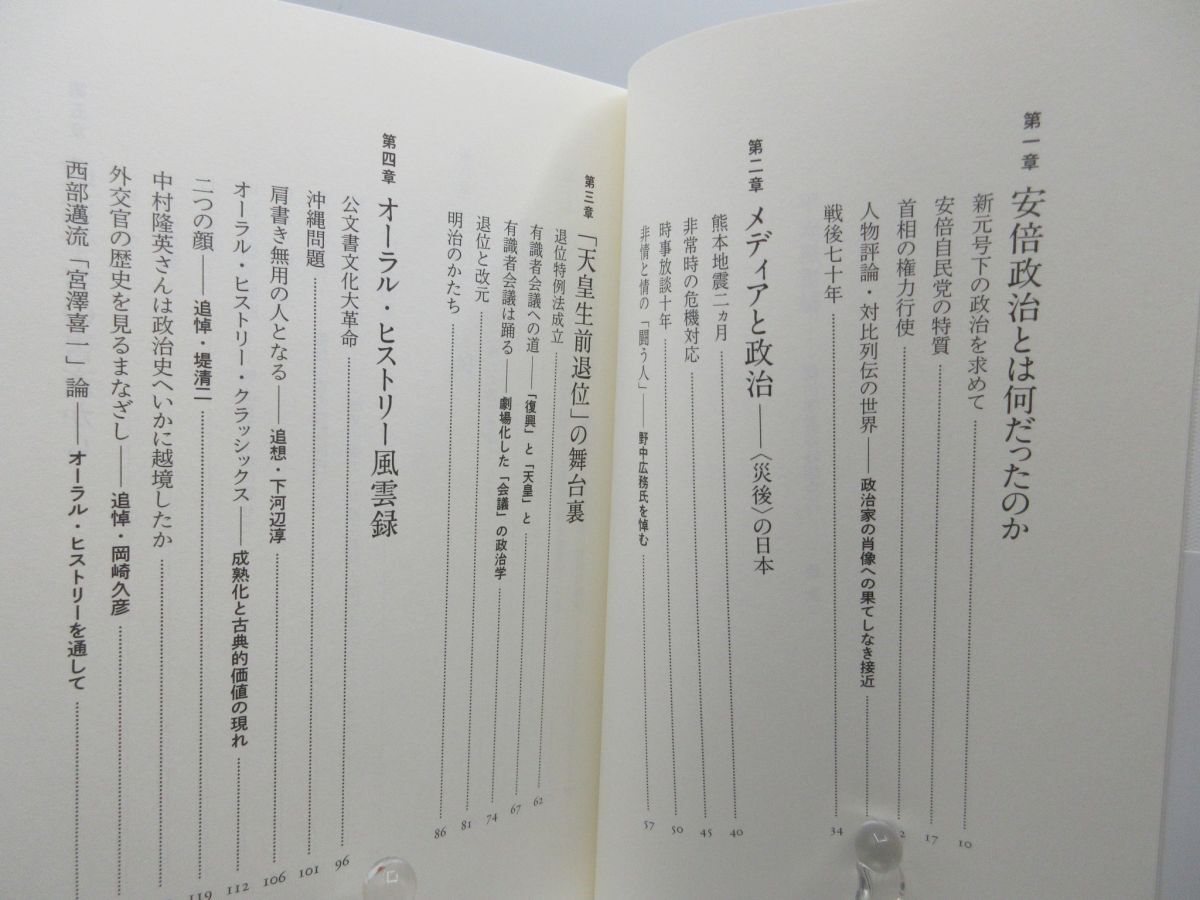 第一章 安倍政治とは何だったのか
新元号下の政治を求めて 10
安倍自民党の特質 17
首相の権力行使
人物評論・対比列伝の世界――政治家の肖像への果てしなき接近
戦後七十年 34
第二章 メディアと政治――〈災後〉の日本
熊本地震二ヵ月 40
非常時の危機対応 45
時事放談十年 50
非情と情の「闘う人」――野中広務氏を悼む 57
第三章 「天皇生前退位」の舞台裏
退位特例法成立 62
有識者会議への道――「復興」と「天皇」と 67
有識者会議は踊る――劇場化した「会議」の政治学 74
退位と改元 81
明治のかたち 86
第四章 オーラル・ヒストリー風雲録
公文書文化大革命 96
沖縄問題 101
肩書き無用の人となる――追想・下河辺淳 106
オーラル・ヒストリー・クラッシックス――成熟化と古典的価値の現れ 112
二つの顔――追悼・堤清二 119
中村隆英さんは政治史へいかに越境したか
外交官の歴史を見るまなざし――追悼・岡崎久彦
西部邁流「宮澤喜一」論――オーラル・ヒストリーを通して